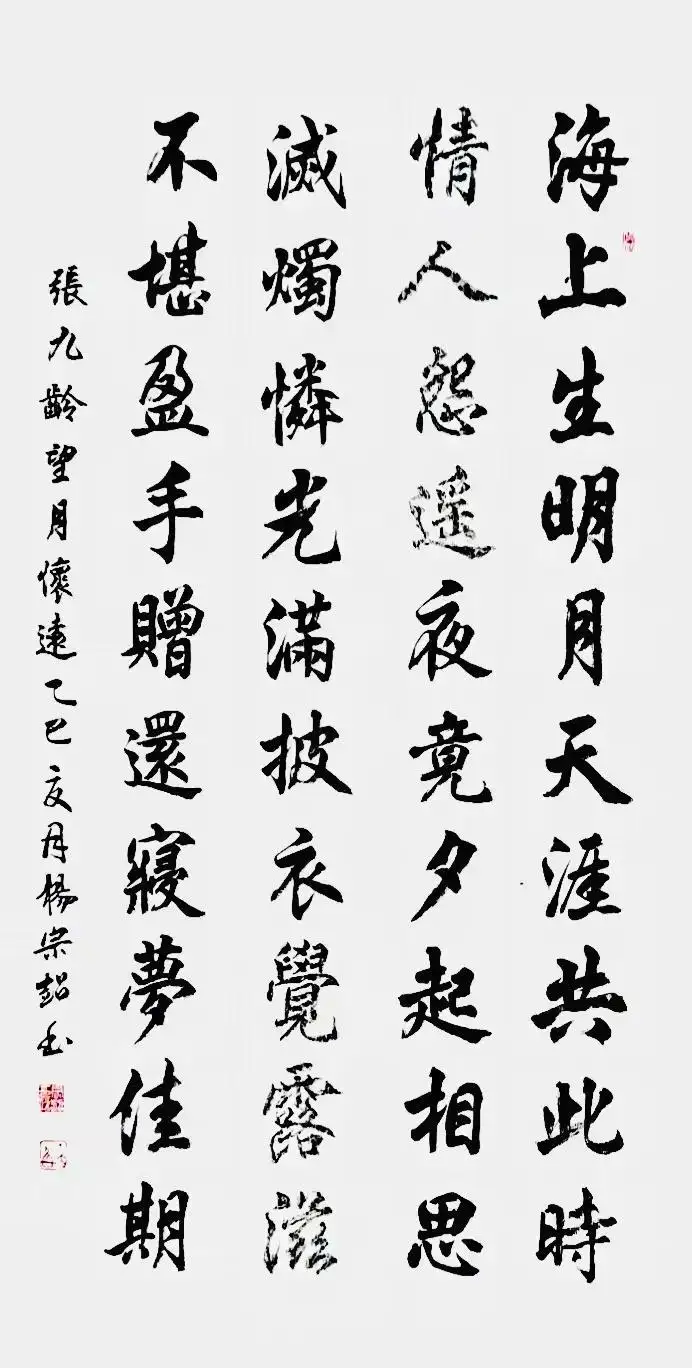 海上生明月天涯共此時
情人怨遥夜竟夕起相思
滅燭憐光滿披衣覺露滋
不堪盈手贈還寢夢佳期
張九齡望月懷遠乙巳夏月楊宗書